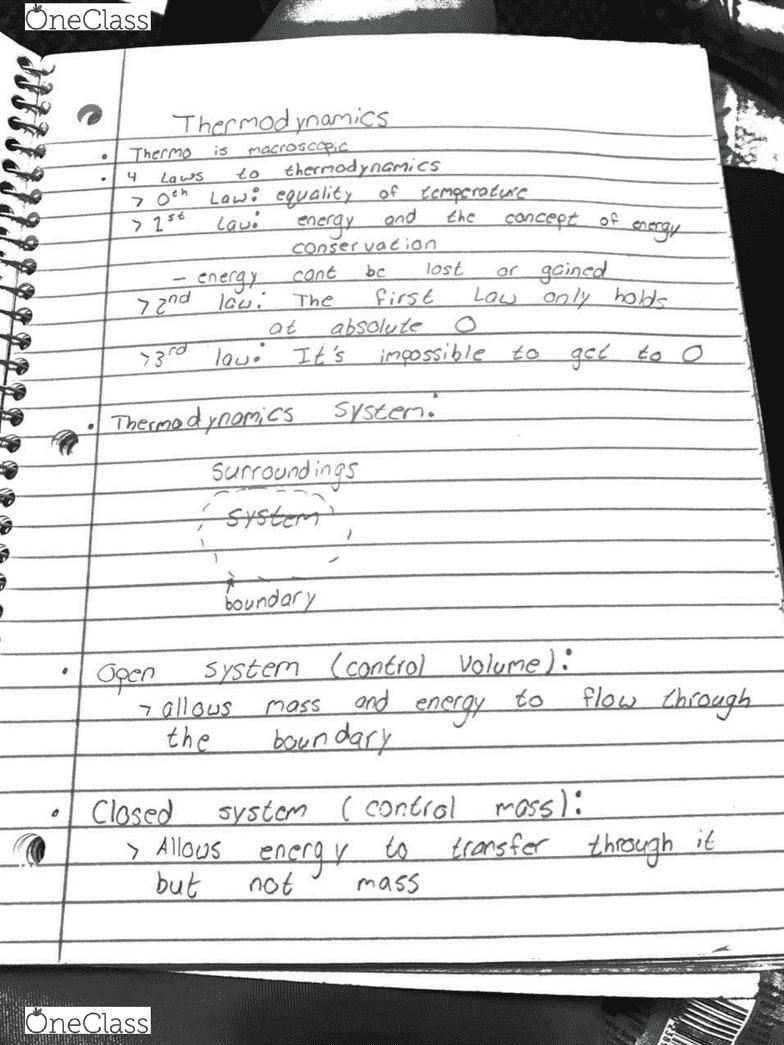 OneClass
Thermodynamics
• Thermo is macroscopic
• 4 Laws to thermodynamics
> 0th Law: equality of temperature
> 1st Law: energy and the concept of energy
conservation
- energy cant be lost or gained
> 2nd law: The first Law only holds
at absolute 0
> 3rd law: It's impossible to get to 0
• Thermodynamics system:
Surroundings
system
boundary
• Open system (control volume):
> allows mass and energy to flow through
the boundary
• Closed system (control mass):
> Allows energy to transfer through it
but not mass
OneClass